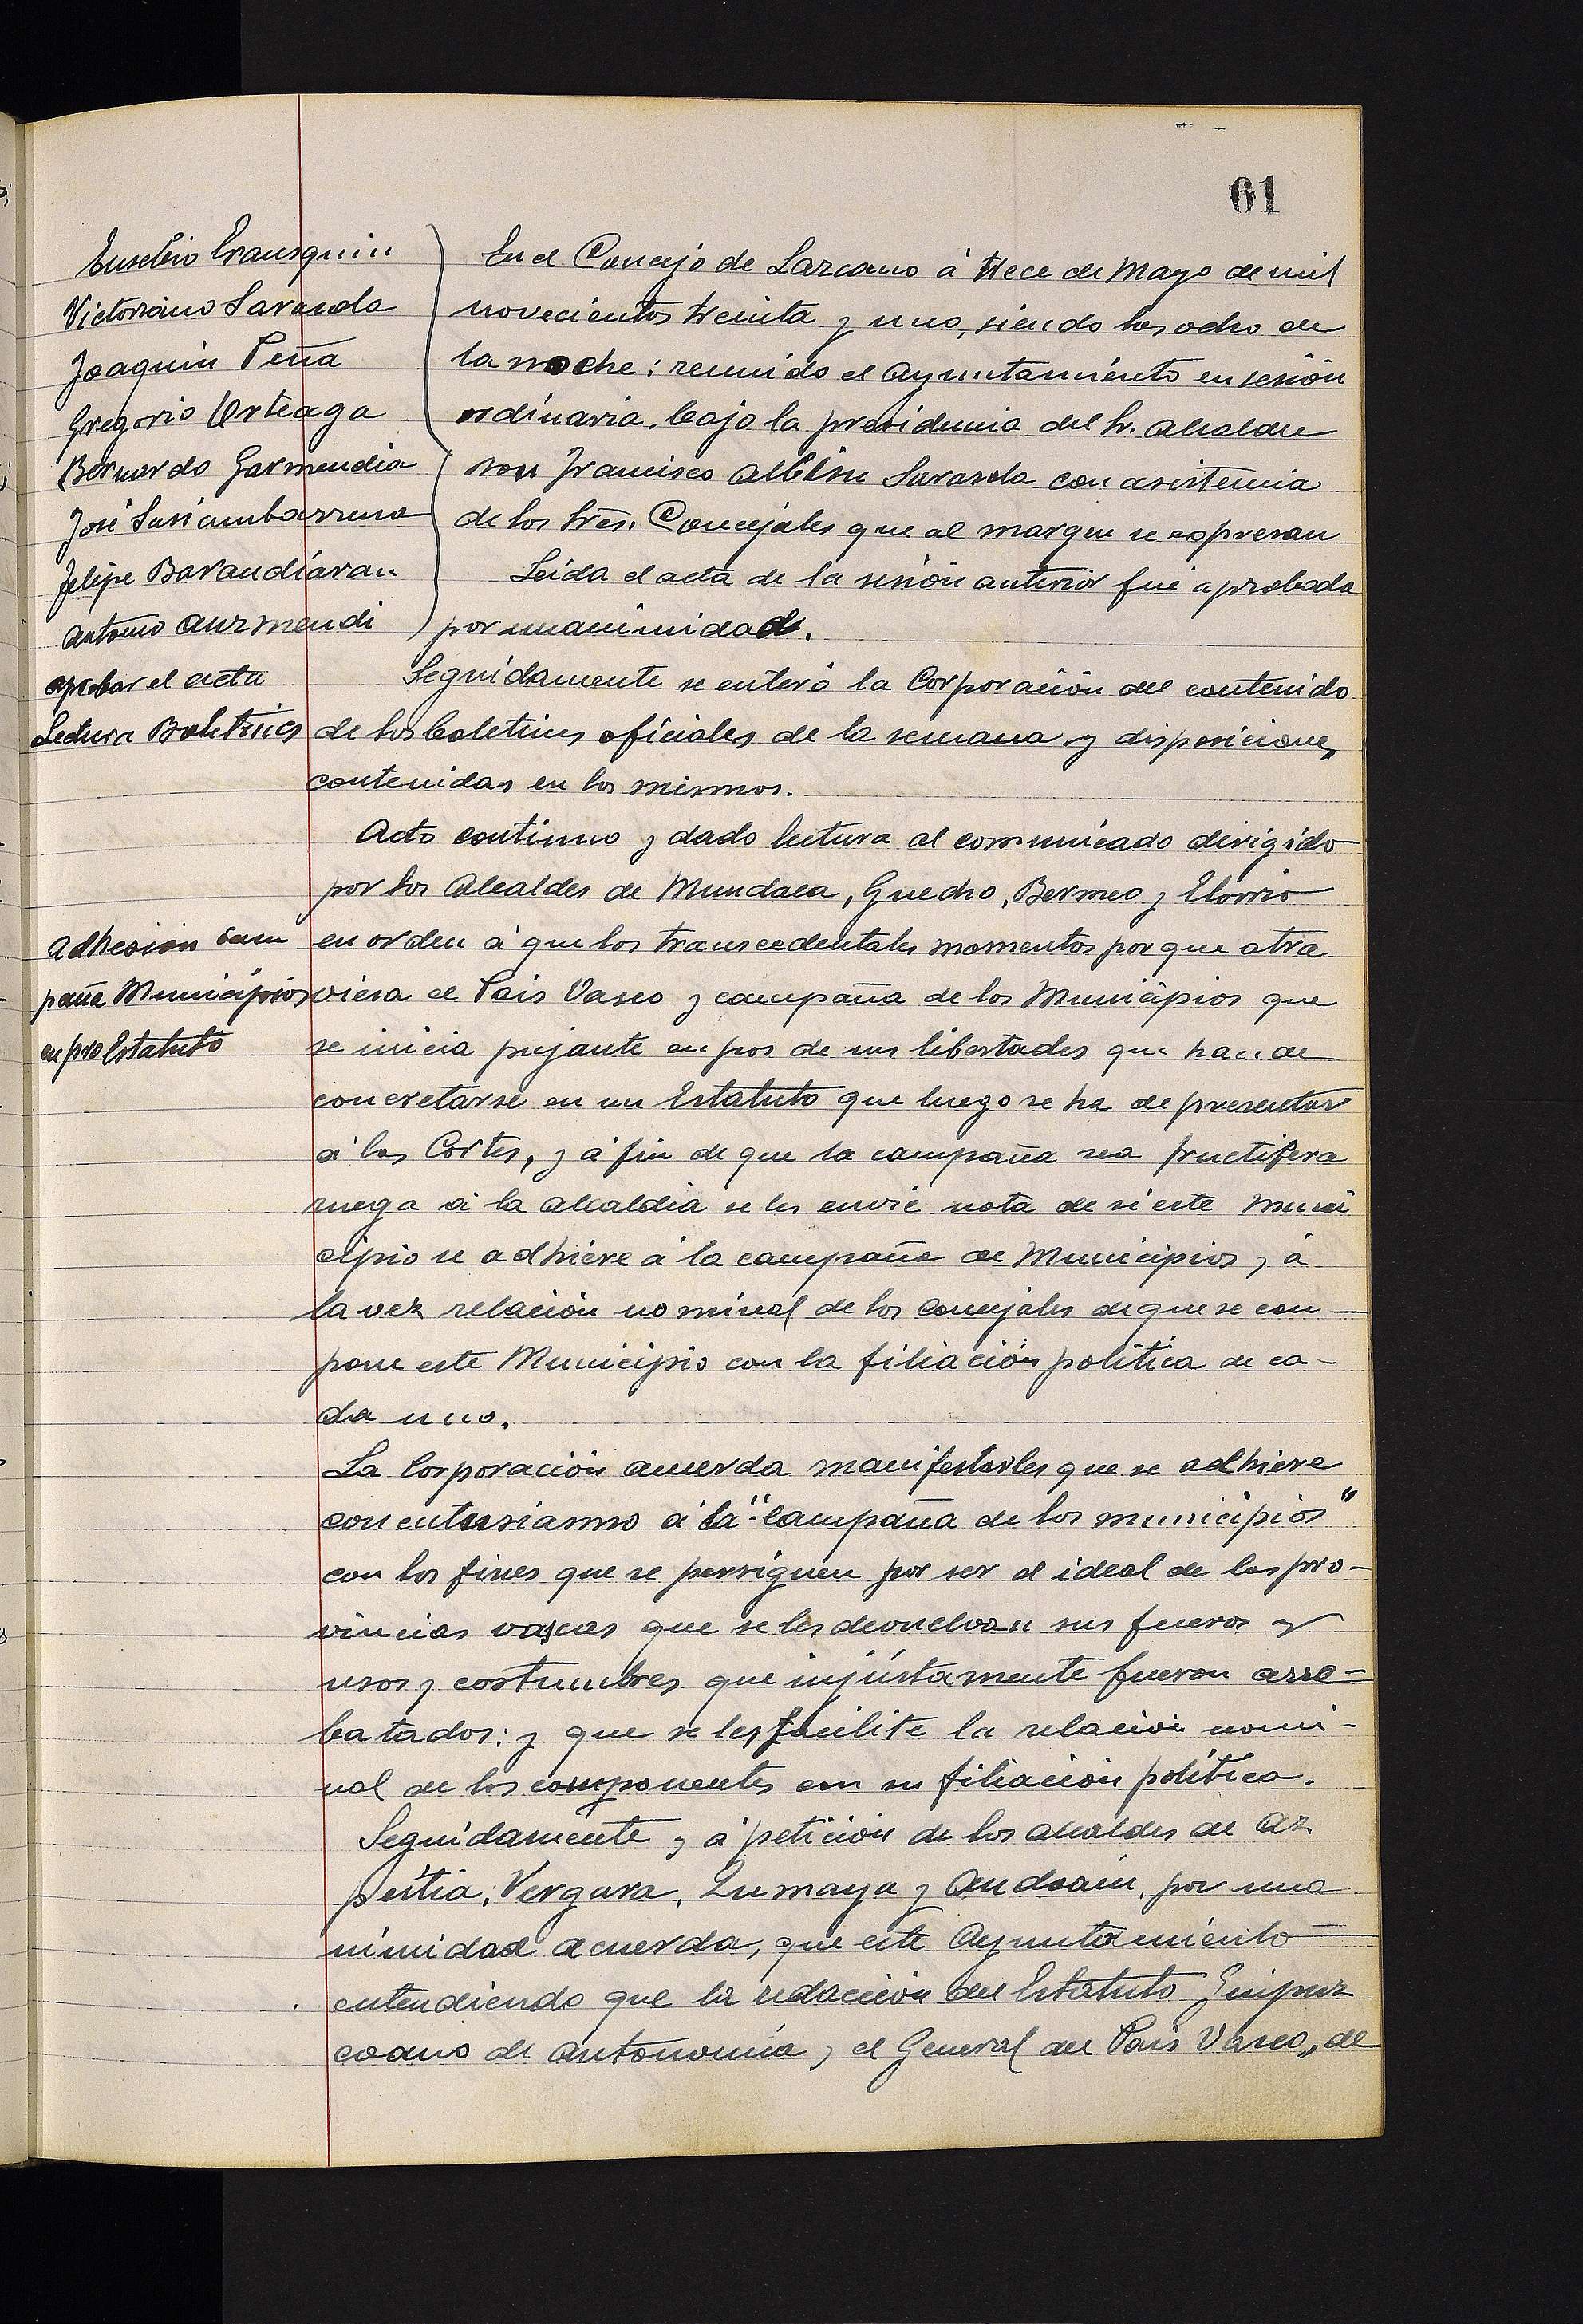 61
Eusebio Erausquin
Victoriano Sarasola
Joaquin Peña
Gregorio Urteaga
Bernardo Garmendia
José Sasiambarrena
Felipe Barandiáran
Antonio Aurmendi
aprobar el acta
Lectura Boletines
Adhesion cam
paña Municipios
en pro Estatuto
En el Concejo de Lazcano á trece de Mayo de mil
novecientos treinta y uno, siendo las ocho de
la noche: reunido el Ayuntamiento en sesión
ordinaria, bajo la presidencia del Sr. Alcalde
Don Francisco Albisu Sarasola con asistencia
de los Sres. Concejales que al margen se expresan
Leida el acta de la sesión anterior fué aprobada
por unanimidad.
Seguidamente se enteró la Corporación del contenido
de los boletines oficiales de la semana y disposiciones
contenidas en los mismos.
Acto continuo y dado lectura al comunicado dirigido
por los Alcaldes de Mundaca, Guecho, Bermeo y Elorrio
en orden á que los transcedentales momentos por que atra
viesa el Pais Vasco y campaña de los Municipios que
se inicia pujante en pos de sus libertades que han de
concretarse en un Estatuto que luego se ha de presentar
á las Cortes, y á fin de que la campaña sea fructifera
ruega á la alcaldia se les envie nota de si este Muni
cipio se adhiere á la campaña de Municipios, á
la vez relación nominal de los concejales de que se com-
pone este Municipio con la filiación politica de ca-
da uno.
La Corporación acuerda manifestarles que se adhiere
con entusiasmo á la "Campaña de los municipios"
con los fines que se persiguen por ser el ideal de las pro-
vincias vascas que se les devuelvan sus fueros y
usos y costumbres que injústamente fueron arre-
batados: y que se les facilite la relación nomi-
nal de los componentes con su filiación politica.
Seguidamente y á petición de los alcaldes de Az
peitia, Vergara, Zumaya y Andoain, por una
nimidad acuerda, que este Ayuntamiento
entendiendo que la redacción del Estatuto Guipuz
coano de Autonomia, y el General del Pais Vasco, de